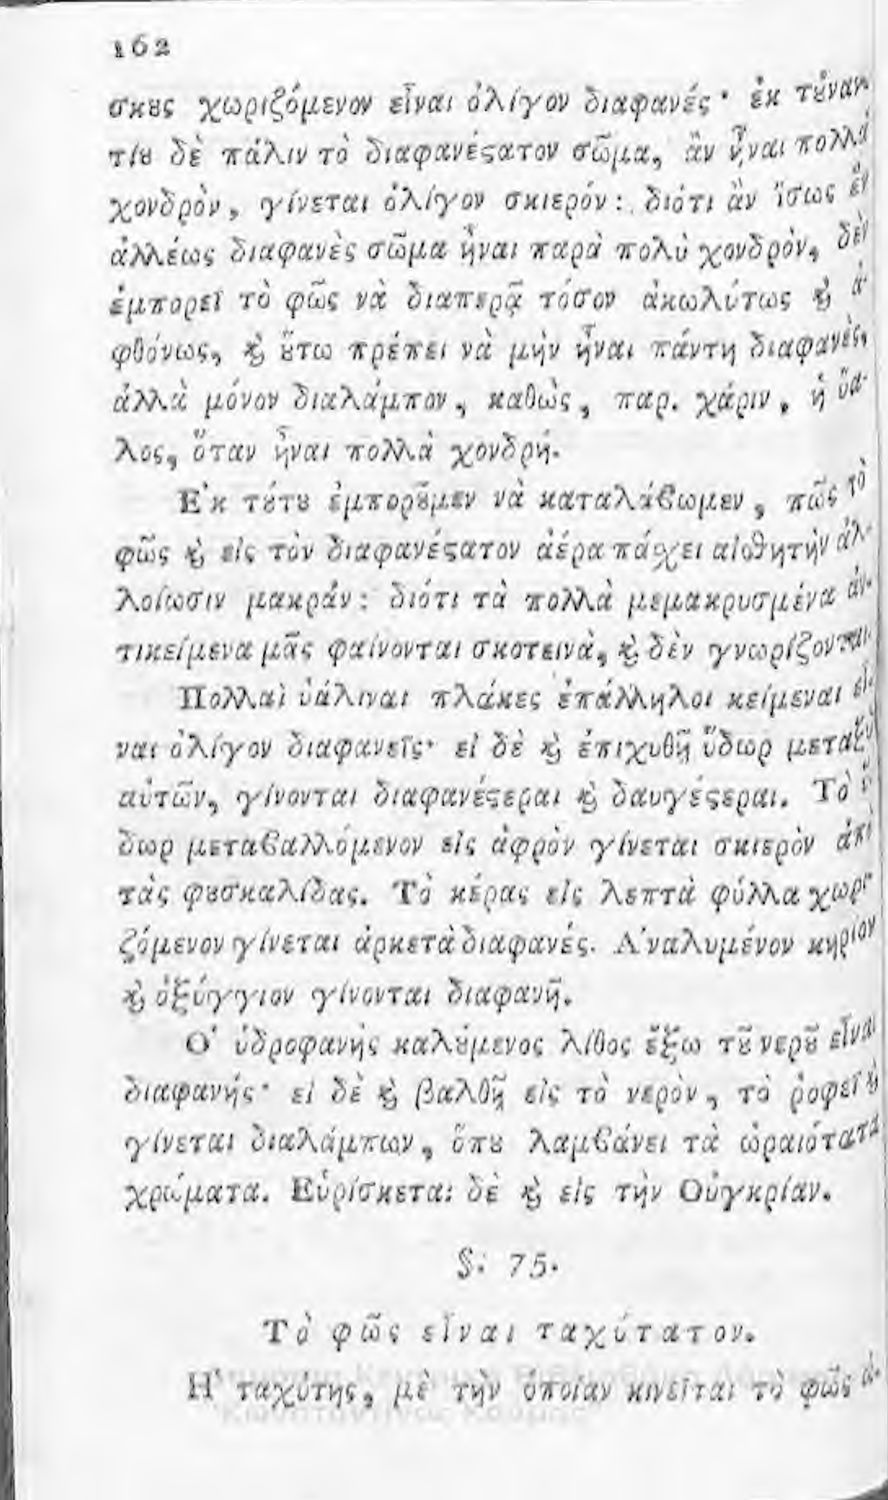 162
σκȣς χωριζόμενον εἶναι ὀλίγον διαφανές· ἐκ τȣ̓ναν-
τίȣ δὲ πάλιν τὸ διαφανέϛατον σῶμα, ἂν ᾖναι πολλὰ
χονδρὸν, γίνεται ὀλίγον σκιερόν: διότι ἂν ἴσως ἓν
ἀλλέως διαφανὲς σῶμα ᾖναι παρὰ πολὺ χονδρὸν, δὲν
ἐμπορεῖ τὸ φῶς νὰ διαπερᾷ τόσον ἀκωλύτως ϗ̀ ἀ-
φθόνως, ϗ̀ ȣ̔́τω πρέπει νὰ μὴν ᾖναι πάντη διαφανὲς,
ἀλλὰ μόνον διαλάμπον, καθὼς, παρ. χάριν, ἡ ὕα-
λος, ὅταν ᾖναι πολλὰ χονδρή.
Ἐκ τȣ́τȣ ἐμπορȣ͂μεν νὰ καταλάϐωμεν, πῶς τὸ
φῶς ϗ̀ εἰς τὸν διαφανέϛατον ἀέρα πάσχει αἰσθητὴν ἀλ-
λοίωσιν μακράν: διότι τὰ πολλὰ μεμακρυσμένα ἀν-
τικείμενα μᾶς φαίνονται σκοτεινὰ, ϗ̀ δὲν γνωρίζονται.
Πολλαὶ ὑάλιναι πλάκες ἐπάλληλοι κείμεναι εἶ-
ναι ὀλίγον διαφανεῖς· εἰ δὲ ϗ̀ ἐπιχυθῇ ὕδωρ μεταξὺ
αὐτῶν, γίνονται διαφανέϛεραι ϗ̀ δαυγέϛεραι. Τὸ ὕ-
δωρ μεταϐαλλόμενον εἰς ἀφρὸν γίνεται σκιερὸν ἀπὸ
τὰς φȣσκαλίδας. Τὸ κέρας εἰς λεπτὰ φύλλα χωρι-
ζόμενον γίνεται ἀρκετὰ διαφανές. Ἀναλυμένον κηρίον
ϗ̀ ὀξύγγιον γίνονται διαφανῆ.
Ὁ ὑδροφανὴς καλȣ́μενος λίθος ἔξω τȣ͂ νερȣ͂ εἶναι
διαφανής· εἰ δὲ ϗ̀ βαλθῇ εἰς τὸ νερὸν, τὸ ῥοφεῖ ϗ̀
γίνεται διαλάμπων, ὅπȣ λαμϐάνει τὰ ὡραιότατα
χρώματα. Εὑρίσκεται δὲ ϗ̀ εἰς τὴν Οὑγκρίαν.
§. 75.
Τὸ φῶς εἶναι ταχύτατον.
Ἡ ταχύτης, μὲ τὴν ὁποίαν κινεῖται τὸ φῶς ἀ-